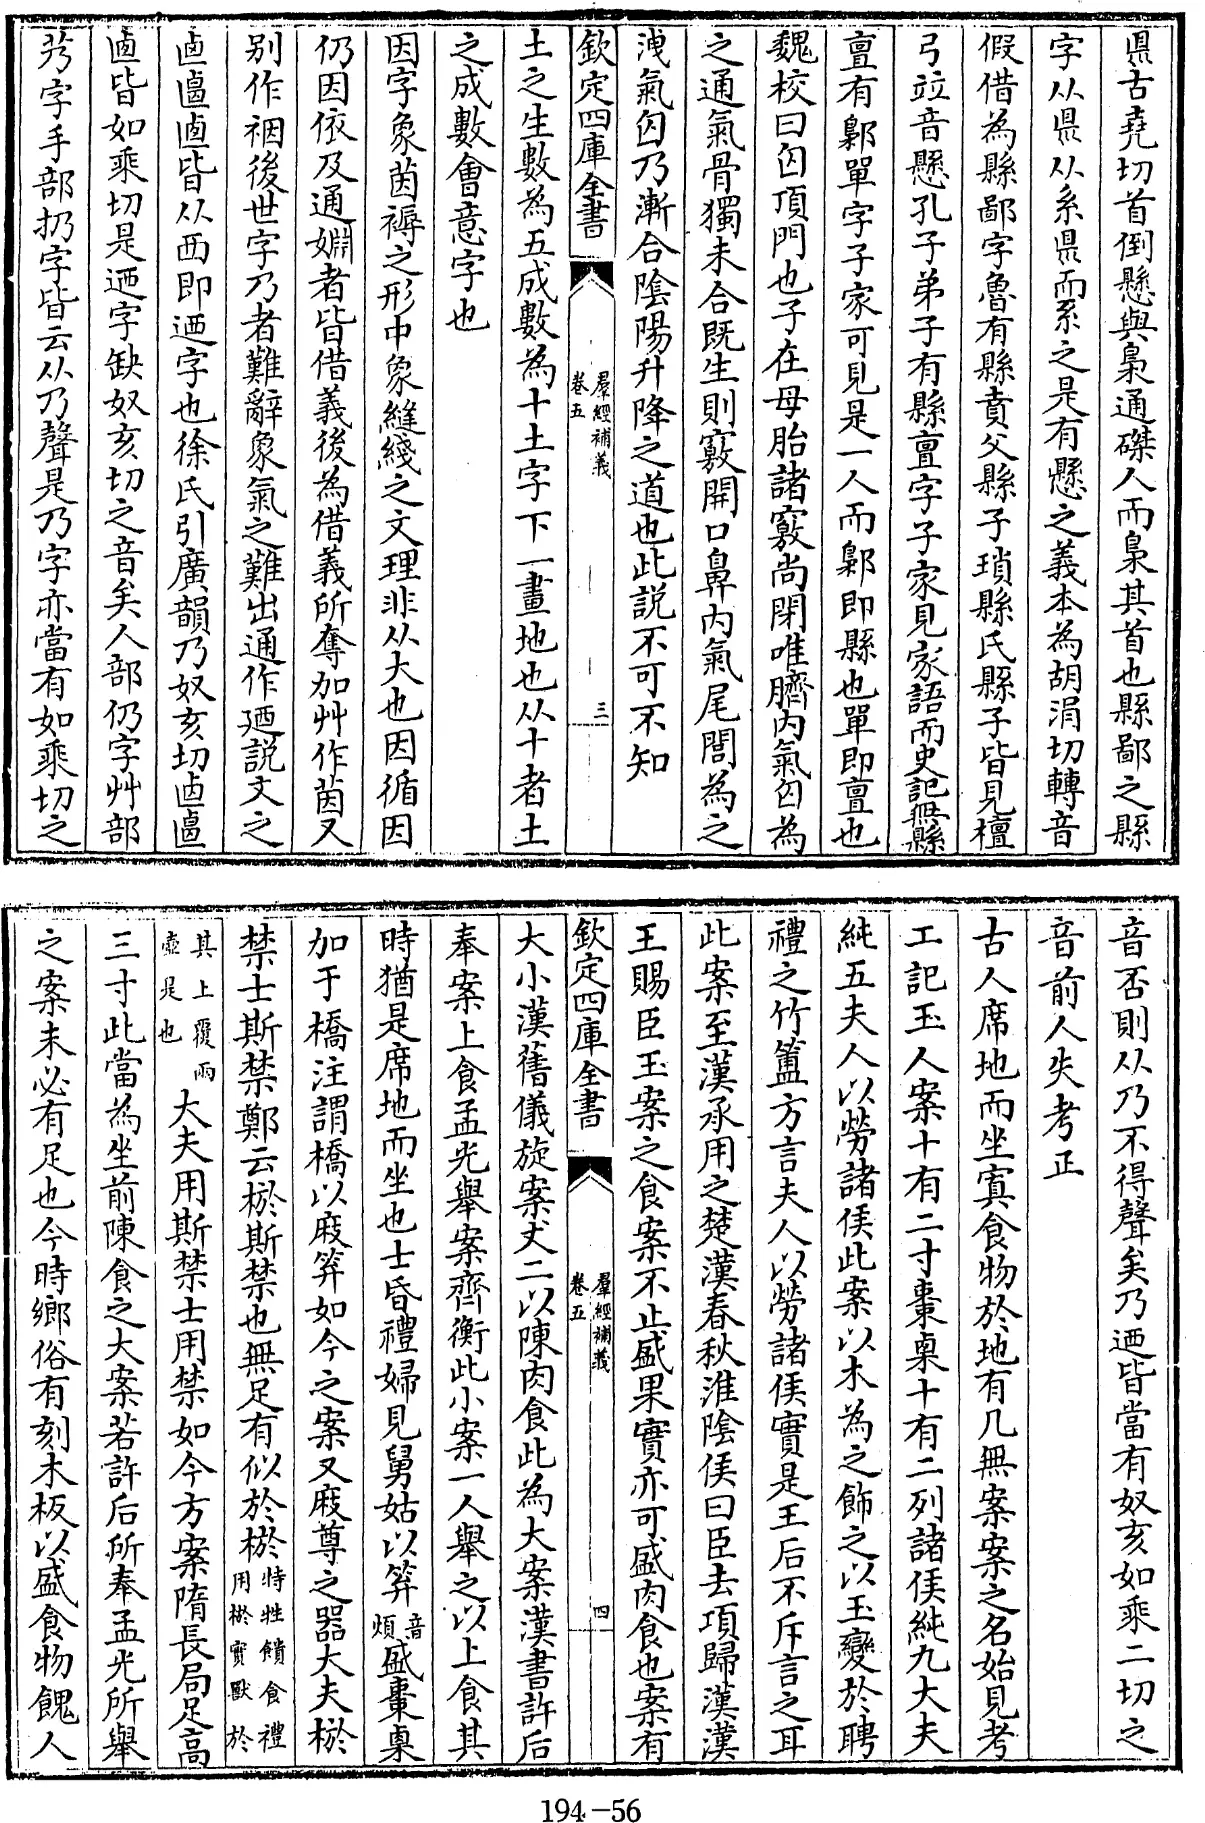 県古堯切首倒懸與梟通磔人而梟其首也縣鄙之縣
字从県从系県而系之是有懸之義本為胡涓切轉音
假借為縣鄙字魯有縣賁父縣子瑣縣氏縣子皆見檀
弓竝音懸孔子弟子有縣亶字子家見家語而史記無縣
亶有鄡單字子家可見是一人而鄡即縣也單即亶也
魏校曰囟頂門也子在母胎諸竅尚閉唯臍内氣囟為
之通氣骨獨未合既生則竅開口鼻内氣尾閭為之
洩氣囟乃漸合陰陽升降之道也此説不可不知
欽定四庫全書 羣經補義 卷五 三
土之生數為五成數為十土字下一畫地也从十者土
之成數會意字也
因字象茵褥之形中象縫綫之文理非从大也因循因
仍因依及通婣者皆借義後為借義所奪加艸作茵又
别作裀後世字乃者難辭象氣之難出通作迺説文之
卥𠧟卥皆从西即迺字也徐氏引廣韻乃奴亥切卥𠧟
卥皆如乘切是迺字缺奴亥切之音矣人部仍字艸部
艿字手部扔字皆云从乃聲是乃字亦當有如乘切之
音否則从乃不得聲矣乃迺皆當有奴亥如乘二切之
音前人失考正
古人席地而坐寘食物於地有几無案案之名始見考
工記玉人案十有二寸棗㮚十有二列諸侯純九大夫
純五夫人以勞諸侯此案以木為之飾之以玉變於聘
禮之竹簠方言夫人以勞諸侯實是王后不斥言之耳
此案至漢承用之楚漢春秋淮陰侯曰臣去項歸漢漢
王賜臣玉案之食案不止盛果實亦可盛肉食也案有
欽定四庫全書 羣經補義 卷五 四
大小漢舊儀旋案丈二以陳肉食此為大案漢書許后
奉案上食孟光舉案齊衡此小案一人舉之以上食其
時猶是席地而坐也士昏禮婦見舅姑以笲音煩盛棗㮚
加于橋注謂橋以庪笲如今之案又庪尊之器大夫棜
禁士斯禁鄭云棜斯禁也無足有似於棜特牲饋食禮用棜實獸於
其上覆兩壺是也大夫用斯禁士用禁如今方案隋長局足高
三寸此當為坐前陳食之大案若許后所奉孟光所舉
之案未必有足也今時鄉俗有刻木板以盛食物餽人
194-56